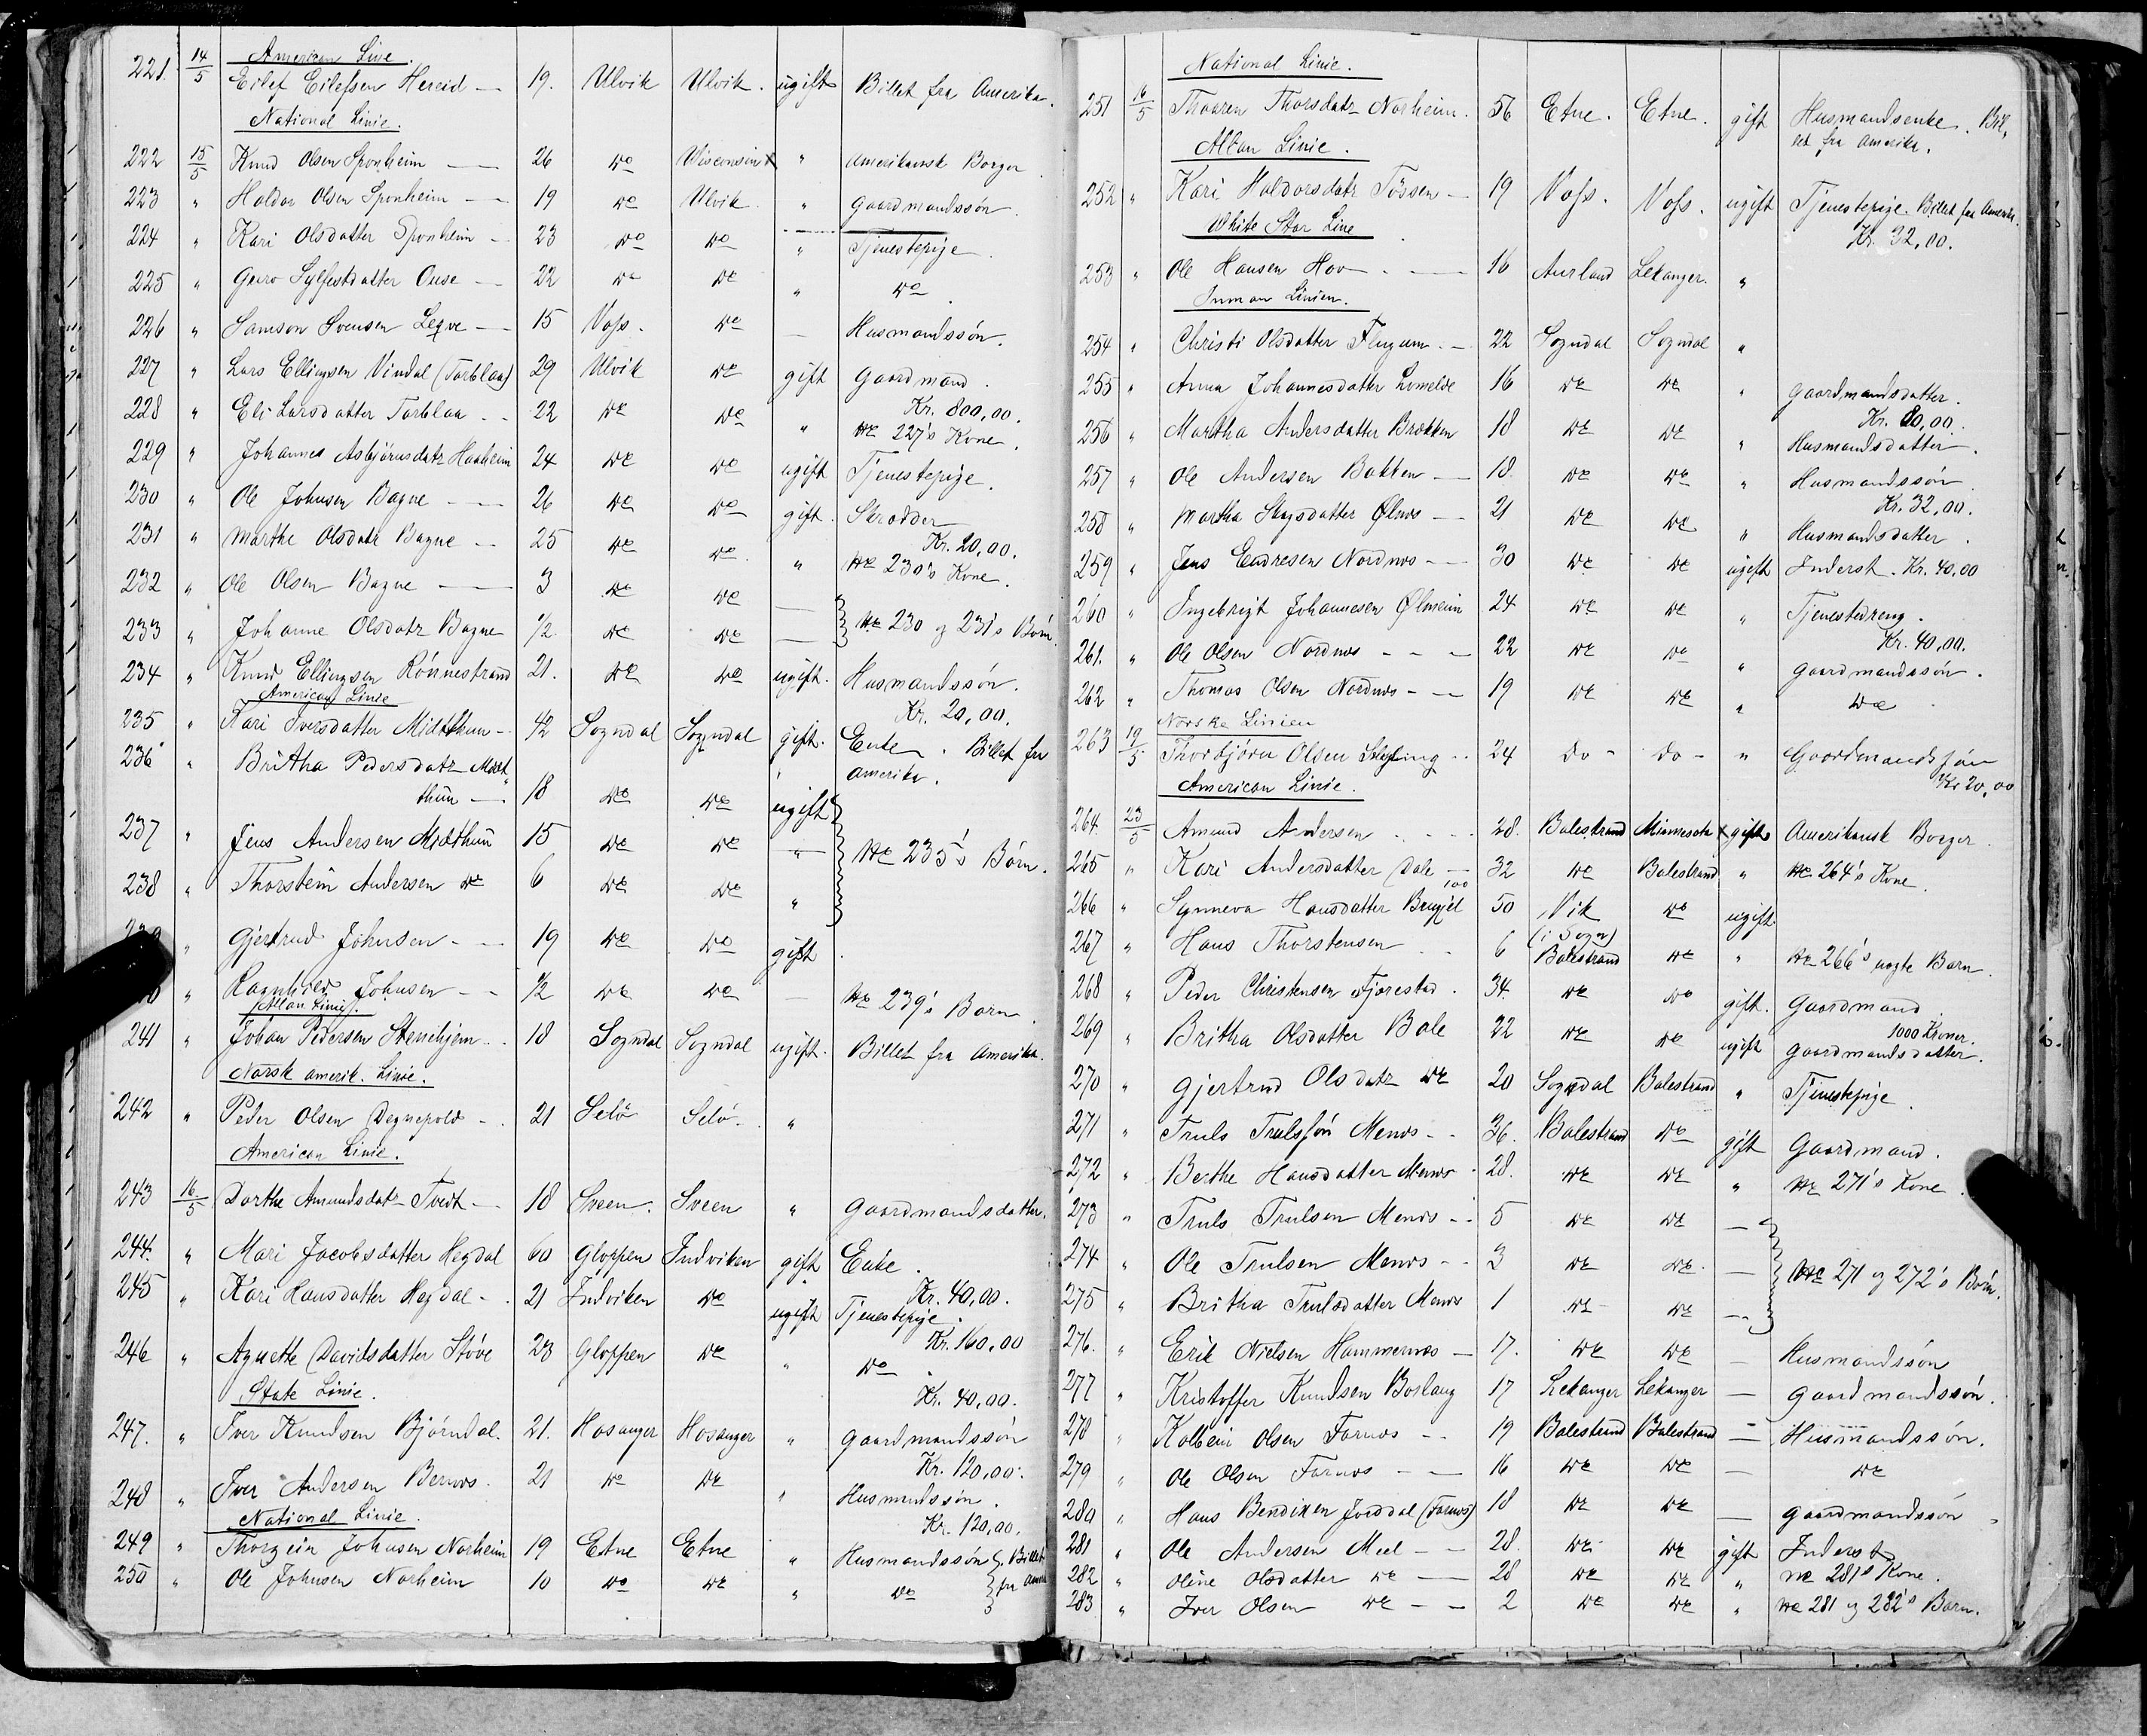 American Line.
221. 14/5 Eilef Eilefsen Hereid — 19. Ulvik Ulvik. ugift Billet fra Amerika.
National Linie.
222 15/5 Knud Olsen Sponheim — 26 do Wisconsin x " Amerikansk Borger
223 " Haldor Olsen Sponheim — 19 do Ulvik. " Gaardmandssön.
224 " Kari Olsdatter Sponheim — 23 do do " Tjenestepige.
225 " Guro Sylfestdatter Ouse — 22 do do " do.
226 " Samson Svensen Leqve — 15 Voss. do — Husmandssön.
227 " Lars Ellingsen Vindal (Torblaa) 29 Ulvik do gift Gaardmand.
Kr. 800,00.
228 " Eli Larsdatter Torblaa - - 22 do do " No 227's Kone.
229 " Johannes Asbjörnsdatr Haaheim 24 do do ugift Tjenestepige.
230 " Ole Johnsen Bagne — 26 do do gift. Skrædder
Kr. 20,00.
231 " Marthe Olsdatr Bagne — 25 do do. " No 230's Kone.
232 " Ole Olsen Bagne — 3 do do —
233 " Johanne Olsdatr Bagne 1/2 do do — No 230 og 231's Börn.
234 " Knud Ellingsen Rönnestrand 21. do do ugift. Husmandssön.
Kr. 20,00.
American Linie
235 " Kari Iversdatter Midtthun - 42 Sogndal Sogndal gift. Enke. Billet fra
Amerika.
236 " Britha Pedersdatr Midt
thun — 18 do do ugift
237 " Jens Andersen Midtthun 15 do do " No 235's Börn.
238 " Thorstein Andersen do 6 do do "
239 " Gjertrud Johnsen - — 19 do do gift.
" Ragnhild Johnsen - - 1/2 do do No 239's Barn.
(Allan Linie).
241 " Johan Pedersen Stenehjem.. 18 Sogndal Sogndal ugift. Billet fra Amerika.
Norsk amerik. Linie.
242 " Peder Olsen Degnepold - . 21 Selö Selö. "
American Linie.
243 16/5 Dorthe Amundsdatr Tvedt — 18 Sveen. Sveen " Gaardmandsdatter.
244. " Mari Jacobsdatter Hegdal 60 Gloppen Indviken gift Enke.
Kr. 40,00.
245 " Kari Hansdatter Hegdal - . 21 Indviken do ugift Tjenestepige.
Kr. 160,00
246 " Agnethe Davidsdatter Stöve 23 Gloppen do " do.
Kr. 40,00.
State Linie.
247. " Iver Knudsen Björndal. 21. Hosanger Hosanger " Gaardmandssön
Kr. 120,00.
248 " Iver Andersen Bernæs. 21 do do " Husmandssön.
Kr. 120,00.
National Linie.
249 " Thorgein Johnsen Norheim 19 Etne Etne " Husmandssön. Billet
250 " Ole Johnsen Norheim 10 do do " do fra Amerik
National Linie.
251 16/5 Thoaren Thorsdatr Norheim. 56 Etne. Etne. gift Husmandsenke. Bil,
let fra Amerika.
Allan Linie.
252 " Kari Haldorsdatr Tössen — 19 Voss. Voss. ugift Tjenestepige. Billet fra Amerika.
Kr. 32,00.
White Star Line
253 " Ole Hansen Hov - — 16 Aurland Lekanger. "
Inman Linien.
254 " Christi Olsdatter Flugum. — 22 Sogndal Sogndal "
255 " Anna Johannesdatter Lomelde 16 do do " Gaardmandsdatter.
Kr. 80,00.
256 " Martha Andersdatter Brækken 18 do do " Husmandsdatter.
257 " Ole Andersen Bakken — 18. do do " Husmandssön
Kr. 32,00.
258 " Martha Stegsdatter Ølnæs — 21 do do " Husmandsdatter.
259 " Jens Endresen Nordnæs - — 30 do do ugift Inderst. Kr. 40,00
260 " Ingebrigt Johannesen Ølmeim 24 do do " Tjenestedreng.
Kr. 40,00.
261. " Ole Olsen Nordnæs - - — 22 do do " Gaardmandssön.
262 " Thomas Olsen Nordnæs - — 19 do do " do
Norske Linien
263 19/5 Thorbjörn Olsen - - 24 do - do - " Gaardmandssön
Kr 20,00
American Linie.
264 23/5 Amund Andersen - - - 28. Balestrand Minnesota x gift Amerikansk Borger.
265 " Kari Andersdatter Dale — 32 do Balestrand " No 264's Kone.
100
266 " Synneva Hansdatter 50 Vik do ugift.
(i Sogn)
267 " Hans Thorstensen - . 6 Balestrand do " No 266's uægte Barn.
268 " Peder Christensen Fjærestad. 34. do do gift. Gaardmand
1000 Kroner.
269 " Britha Olsdatter Bale 22 do do ugift Gaardmandsdatter.
270 " Gjertrud Olsdatr do 20 Sogndal Balestrand " Tjenestepige.
271 " Truls Trulssön Menæs - - 36. Balestrand do gift Gaardmand.
272 " Berthe Hansdatter Menæs - 28. do do " No 271's Kone.
273 " Truls Trulsen Menæs - - 5 do do —
274 " Ole Trulsen Menæs - - 3 do do. — No 271 og 272's Börn.
275 " Britha Trulsdatter Menæs 1 do do —
276. " Erik Nielsen Hammernæs — 17. do do — Husmandssön
277 " Kristoffer Knudsen Borlaug 17 Lekanger Lekanger — Gaardmandssön.
278 " Kolbein Olsen Farnæs - - 19 Balestrand Balestrand — Husmandssön.
279 " Ole Olsen Farnæs - — 16 do do — do
280 " Hans Bendiken Jorddal (Farnæs) 18 do do — Gaardmandssön
281 " Ole Andersen Meel - — 28. do do gift Inderst
282 " Oline Olsdatter do — 28 do do " No 281's Kone.
283 " Iver Olsen do - — 2 do do " No 281 og 282's Barn.